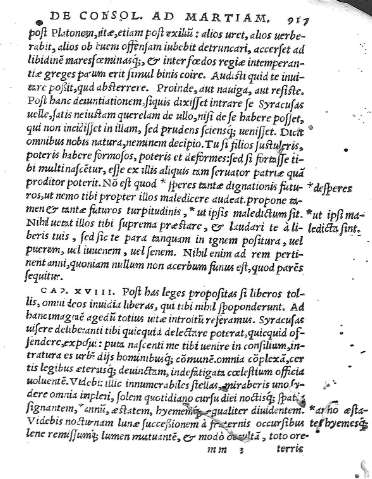 DE CONSOL. AD MARTIAM. 917
post Platonem, etiam post exiliũ: alios uret, alios uerbe-
rabit, alios ob suam offensam iubebit detruncari, accerset ad
libidinẽ mares fœminasq;, & inter fœdos regiæ intemperan-
tiæ greges parum erit simul binis coire. Audisti quid te inui-
tare possit, quid absterrere. Proinde, aut nauiga, aut resiste.
Post hanc denuntiationem, siquis dixisset intrare se Syracusas
uelle, satis ne iustam querelam de ullo, nisi de se habere posset,
qui non incidisset in illam, sed prudens sciensq; uenisset. Dicit
omnibus nobis natura, neminem decipio. Tu si filios sustuleris,
poteris habere formosos, poteris et deformes: sed si fortasse ti-
bi multi nascẽtur, esse ex illis aliquis tam seruator patriæ quã
proditor poterit. Nõ est quod *speres tantæ dignationis futu-
*desperes
ros, ut nemo tibi propter illos maledicere audeat. propone ta-
men & tantæ futuros turpitudinis, *ut ipsi maledictum sit.
*ut ipsi ma-
ledicta sint.
Nihil uetat illos tibi suprema præstare, & laudari te à li-
beris tuis, sed sic te para tanquam in ignem positura, uel
puerum, uel iuuenem, uel senem. Nihil enim ad rem perti-
nent anni, quoniam nullum non acerbum funus est, quod parẽs
sequitur.
CAP. XVIII. Post has leges propositas si liberos tol-
lis, omni deos inuidia liberas, qui tibi nihil spoponderunt. Ad
hanc imaginẽ agedũ totius uitæ introitũ referamus. Syracusas
uisere deliberanti tibi quicquid delectare poterat, quicquid of-
fendere, exposui: puta nascenti me tibi uenire in consilium, in-
tratura es urbẽ dijs hominibusq; cõmunẽ. omnia cõplexã, cer
tis legibus æternisq; deuinctam, indefatigata cœlestium officia
uoluentẽ. Videbis illic innumerabiles stellas, miraberis uno sy-
dere omnia impleri, solem quotidiano cursu diei noctisq; spatia
signantem, *annũ, æstatem, hyememq; æqualiter diuidentem.
Videbis nocturnam lunæ successionẽ à fraternis occursibus
lene remissumq; lumen mutuantẽ, & modo occultã, toto ore
mm 3 terris